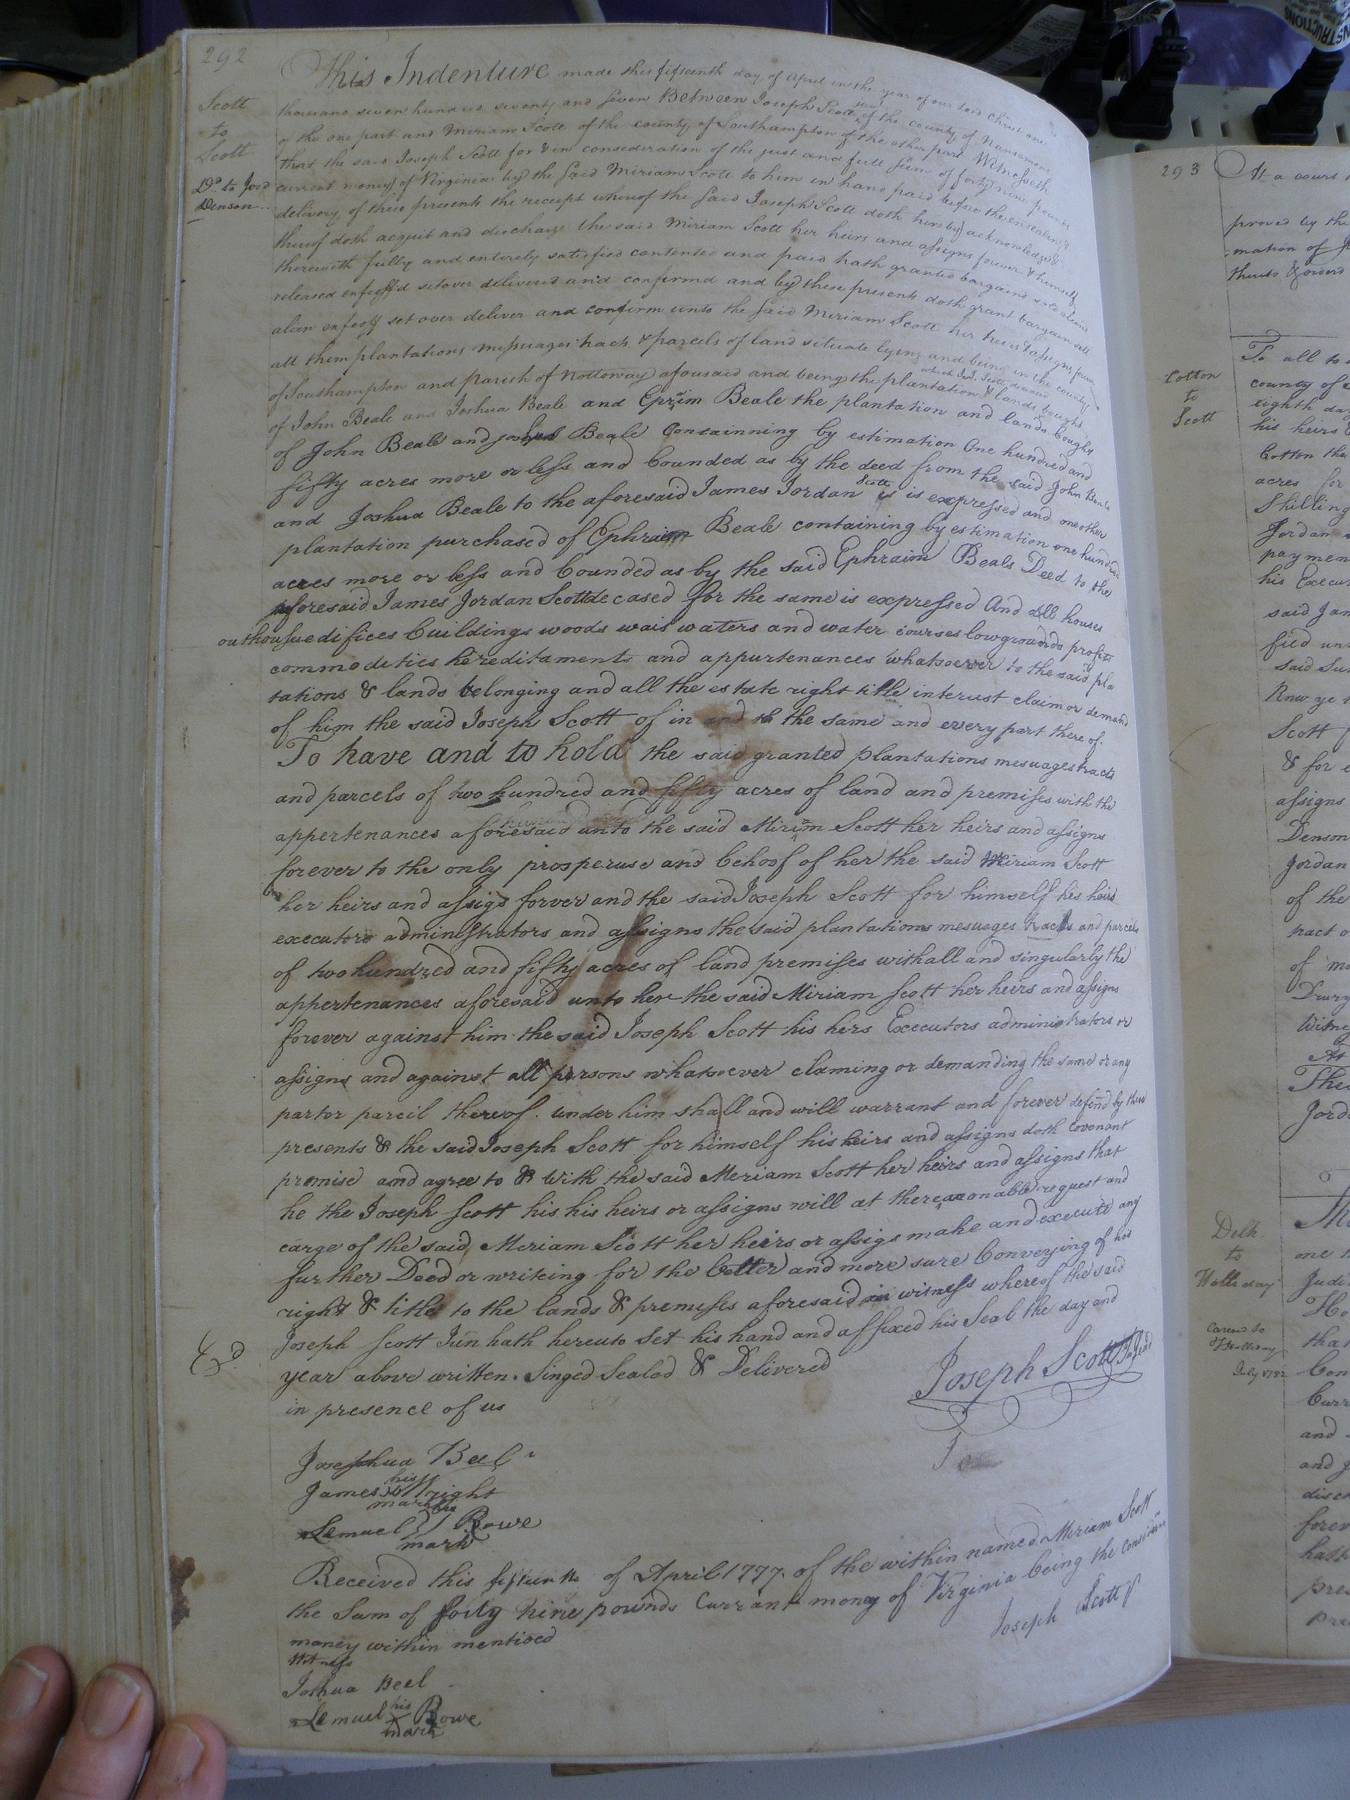 292
Scott
to
Scott
Dd. to Jord
Denson
This Indenture made this fifteenth day of April in the year of our Lord Christ one
thousand seven hundred seventy and seven Between Joseph Scott Jun of the county of Nansemond
of the one part and Miriam Scott of the county of Southampton of the other part Witnesseth
that the said Joseph Scott for & in consideration of the just and full sum of forty nine pounds
current money of Virginia by the said Miriam Scott to him in hand paid before the ensealing &
delivery of these presents the receipt whereof the said Joseph Scott doth hereby acknowledge &
thereof doth acquit and discharge the said Miriam Scott her heirs and assigns forever & himself
therewith fully and entirely satisfied contented and paid hath granted bargained sold aliened
released enfeoff'd setover delivered and confirmed and by these presents doth grant bargain sell
alien enfeoff set over deliver and confirm unto the said Miriam Scott her heirs & assigns forever
all them plantations messuages tracts & parcels of land situate lying and being in the county
of Southampton and parish of Nottoway aforesaid and being the plantation & lands bought
of John Beale and Joshua Beale and Epraim Beale the plantation and lands bought
of John Beale and Joshua Beale Containning by estimation One hundred and
fifty acres more or less and bounded as by the deed from the said John Beale
and Joshua Beale to the aforesaid James Jordan Scott is is expressed and one other
plantation purchased of Ephraim Beale containing by estimation one hundred
acres more or less and bounded as by the said Ephraim Beals Deed to the
aforesaid James Jordan Scott decased for the same is expressed And all houses
outhousue edifices buildings woods wais waters and water courses lowgrounds profits
commodities hereditaments and appurtenances whatsoever to the said pla
tations & lands belonging and all the estate right title interust claim or demand
of him the said Joseph Scott of in and to the same and every part there of.
To have and to hold the said granted plantations mesuages tracts
and parcels of two hundred and fifty acres of land and premises with the
appertenances aforesaid unto the said Mirim Scott her heirs and assigns
forever to the only prosperuse and behoof of her the said Miriam Scott
her heirs and assigs forver and the said Joseph Scott for himself his heirs
executors administrators and assigns the said plantations mesuages tracts and parcels
of two hundred and fifty acres of land premises withall and singularly the
appertenances aforesaid unto her the said Miriam Scott her heirs and assigns
forever against him the said Joseph Scott his hers Executors administrators or
assigns and against all persons whatsoever claming or demanding the same or any
part or parcil thereof. under him shall and will warrant and forever defend by these
presents & the said Joseph Scott for himself his heirs and assigns doth Covenant
promise and agree to & with the said Meriam Scott her heirs and assigns that
he the Joseph Scott his his heirs or assigns will at the reasonable request and
carge of the said Meriam Scott her heirs or assigs make and execute any
further Deed or writeing for the better and more sure Conveying of his
right & title to the lands & premises aforesaid in witness whereof the said
Joseph Scott Jun hath hereuto set his hand and affixed his Seal the day and
year above written. Singed Sealed & Delivered
in presence of us
Joseph Scott
Josephua Beel
James his Wright
mark
Lemuel his Rowe
mark
Received this fifteenth of April 1777 of the within named Meriam Scott
the Sum of forty nine pounds Currant money of Virginia being the consideration
money within mentioed
Joseph Scott
Witness
Joshua Beel
Lemuel his Rowe
mark
293
At a court
proved by the
mation of
thereto & orderd
Cotton
to
Scott
To all to
county of
eighth da
his heirs
Cotton tha
acres for
Shilling
Jordan
paymen
his Execu
said Jam
fied un
said Su
Know ye
Scott
& for
assigns
Denson
Jordan
of the
tract o
of mo
Drury
Witne
At
The
Jord
Delk
to
Holladay
one
Judi
Ho
tha
Con
Curr
and
and
disc
forev
hath
pre
pre
July 1782